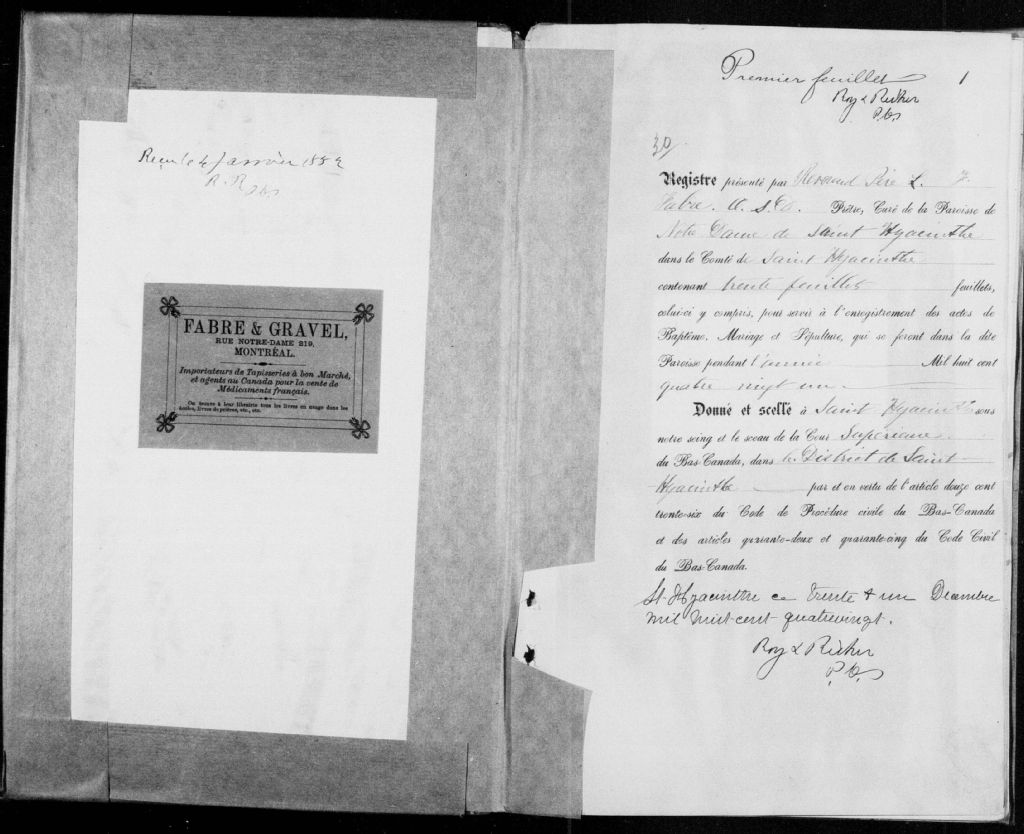 Reçu le 4 Janvier 1882
R. R.
FABRE & GRAVEL,
RUE NOTRE-DAME 219,
MONTRÉAL.
Importateurs de Tapisseries à bon Marché,
et agents au Canada pour la vente de
Médicaments français.
On trouve à leur librairie tous les livres en usage dans les
écoles, livres de prières, etc., etc.
Premier feuillet 1
Roy & Richer
P.C.S
30/
Registre présenté par Révérend Père L.
Prêtre, Curé de la Paroisse de
Notre Dame de Saint Hyacinthe
dans le Comté de Saint Hyacinthe
contenant trente feuillets feuillets,
celui-ci y compris, pour servir à l'enregistrement des actes de
Baptême, Mariage et Sépulture, qui se feront dans la dite
Paroisse pendant l'année Mil huit cent
quatre vingt un.
Donné et scellé à Saint Hyacinthe sous
notre seing et le sceau de la Cour Supérieure
du Bas-Canada, dans le District de Saint
Hyacinthe par et en vertu de l'article douze cent
trente-six du Code de Procédure civile du Bas-Canada
et des articles quarante-deux et quarante-cinq du Code Civil
du Bas-Canada.
St Hyacinthe ce trente & un Décembre
mil huit-cent quatrevingt.
Roy & Richer
P.C.S